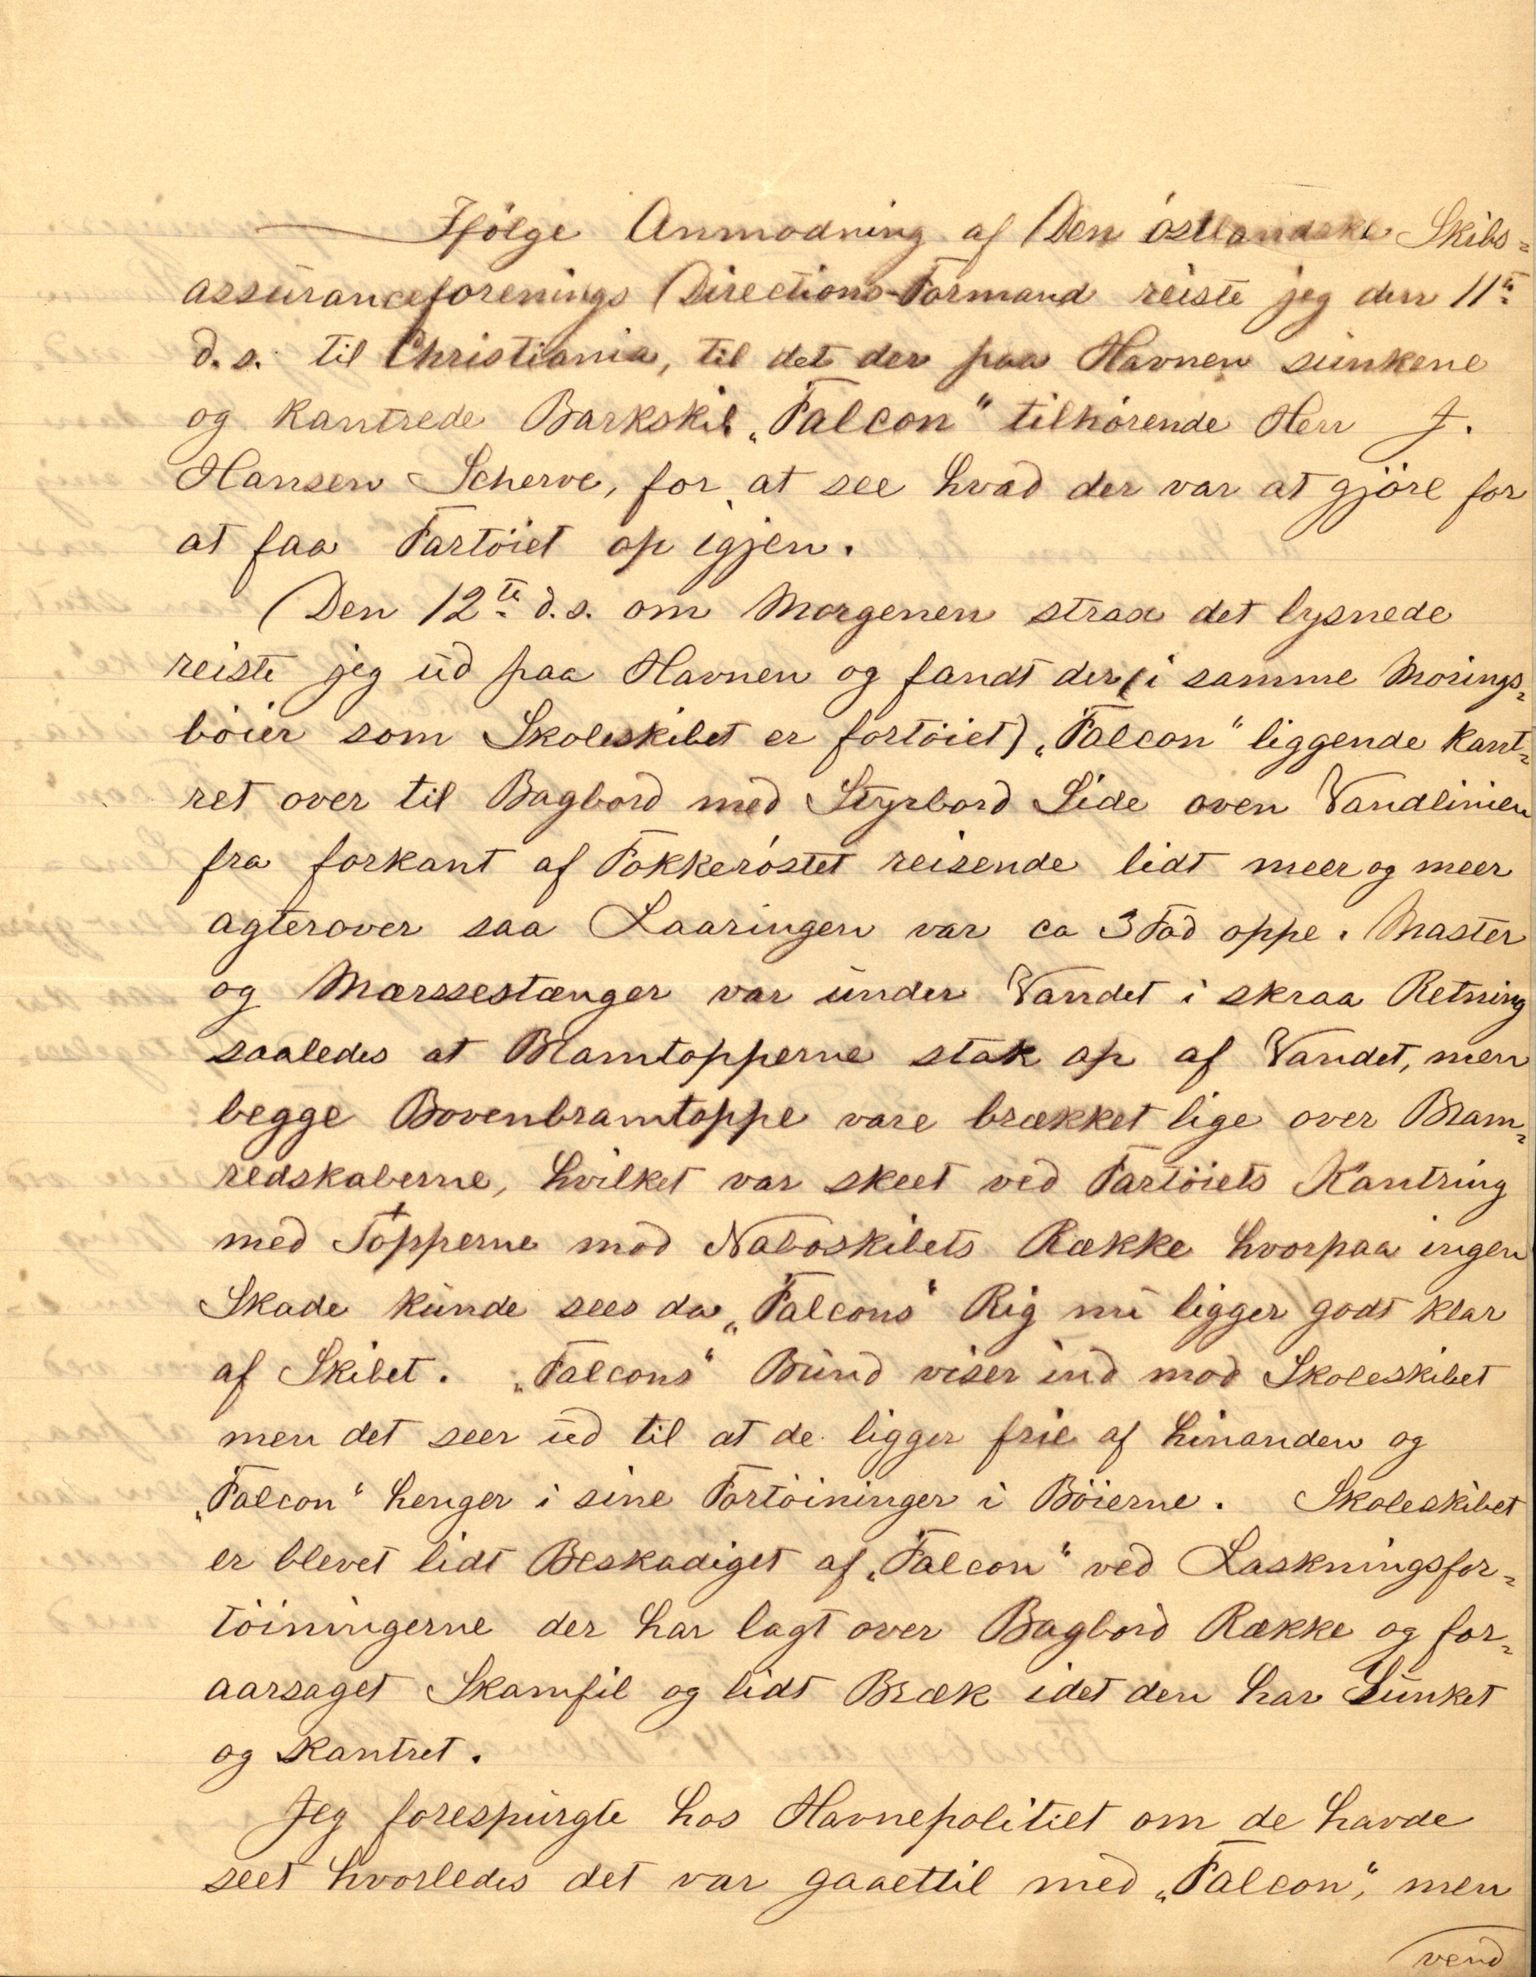 Ifölge Anmodning af Den östlandske Skibs=
assuranceforenings Directions-Formand reiste jeg den 11te
d.s. til Christiania, til det der paa Havnen sunkene
og kantrede Barkskib „Falcon“ tilhörende Herr J.
Hansen Scherve, for at see hvad der var at gjöre for
at faa Fartöiet op igjen.
Den 12te d.s. om Morgenen strax det lysnede
reiste jeg ud paa Havnen og fandt der (i samme Morings=
böier som Skoleskibet er fortöiet) „Falcon“ liggende kant=
ret over til Bagbord med Styrbord Side oven Vandlinien
fra forkant af Fokkeröstet reisende lidt meer og meer
agterover saa Laaringen var ca 3 Fod oppe. Master
og Mærssestænger var under Vandet i skraa Retning
saaledes at Bramtopperne stak op af Vandet, men
begge Bovenbramtoppe vare brækket lige over Bram=
redskaberne, hvilket var skeet ved Fartöiets Kantring
med Topperne mod Naboskibets Række hvorpaa ingen
Skade kunde sees da „Falcons“ Rig nu ligger godt klar
af Skibet. „Falcons“ Bund viser ind mod Skoleskibet
men det seer ud til at de ligger frie af hinanden og
„Falcon“ henger i sine Fortöininger i Böierne. Skoleskibet
er blevet lidt Beskadiget af „Falcon“ ved Laskningsfor=
töiningerne der har lagt over Bagbord Række og for=
aarsaget Skamfil og lidt Bræk idet den har Sunket
og kantret.
Jeg forespurgte hos Havnepolitiet om de havde
seet hvorledes det var gaaettil med „Falcon“, men
vend